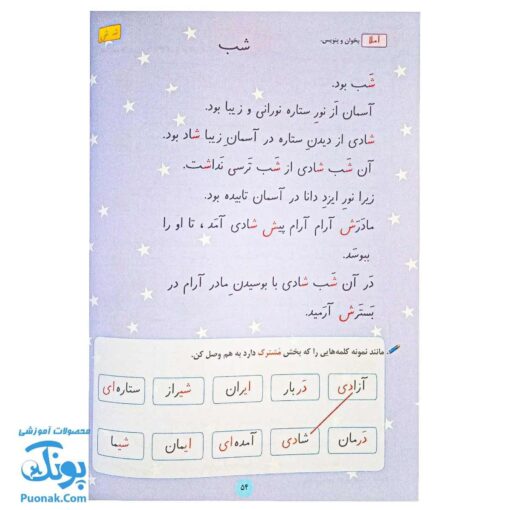 املا
بخوان و بنویس.
شب
شَب بود.
آسمان اَز نورِ ستاره نورانی و زیبا بود.
شادی از دیدنِ ستاره در آسمانِ زیبا شاد بود.
آن شَب شادی از شَب تَرسی نَداشت.
زیرا نورِ ایزدِ دانا در آسمان تابیده بود.
مادَرَش آرام آرام پیشِ شادی آمَد، تا او را
ببوسَد.
دَر آن شَب شادی با بوسیدنِ مادر آرام در
بَستَرَش آرَمید.
مانند نمونه کلمه‌هایی را که بخش مُشترک دارد به هم وصل کن.
آزادی دَربار ایران شیراز ستاره‌ای
دَرمان شادی آمده‌ای ایمان شیما
۵۴
محصولات آموزشی
پونک
Puonak.Com